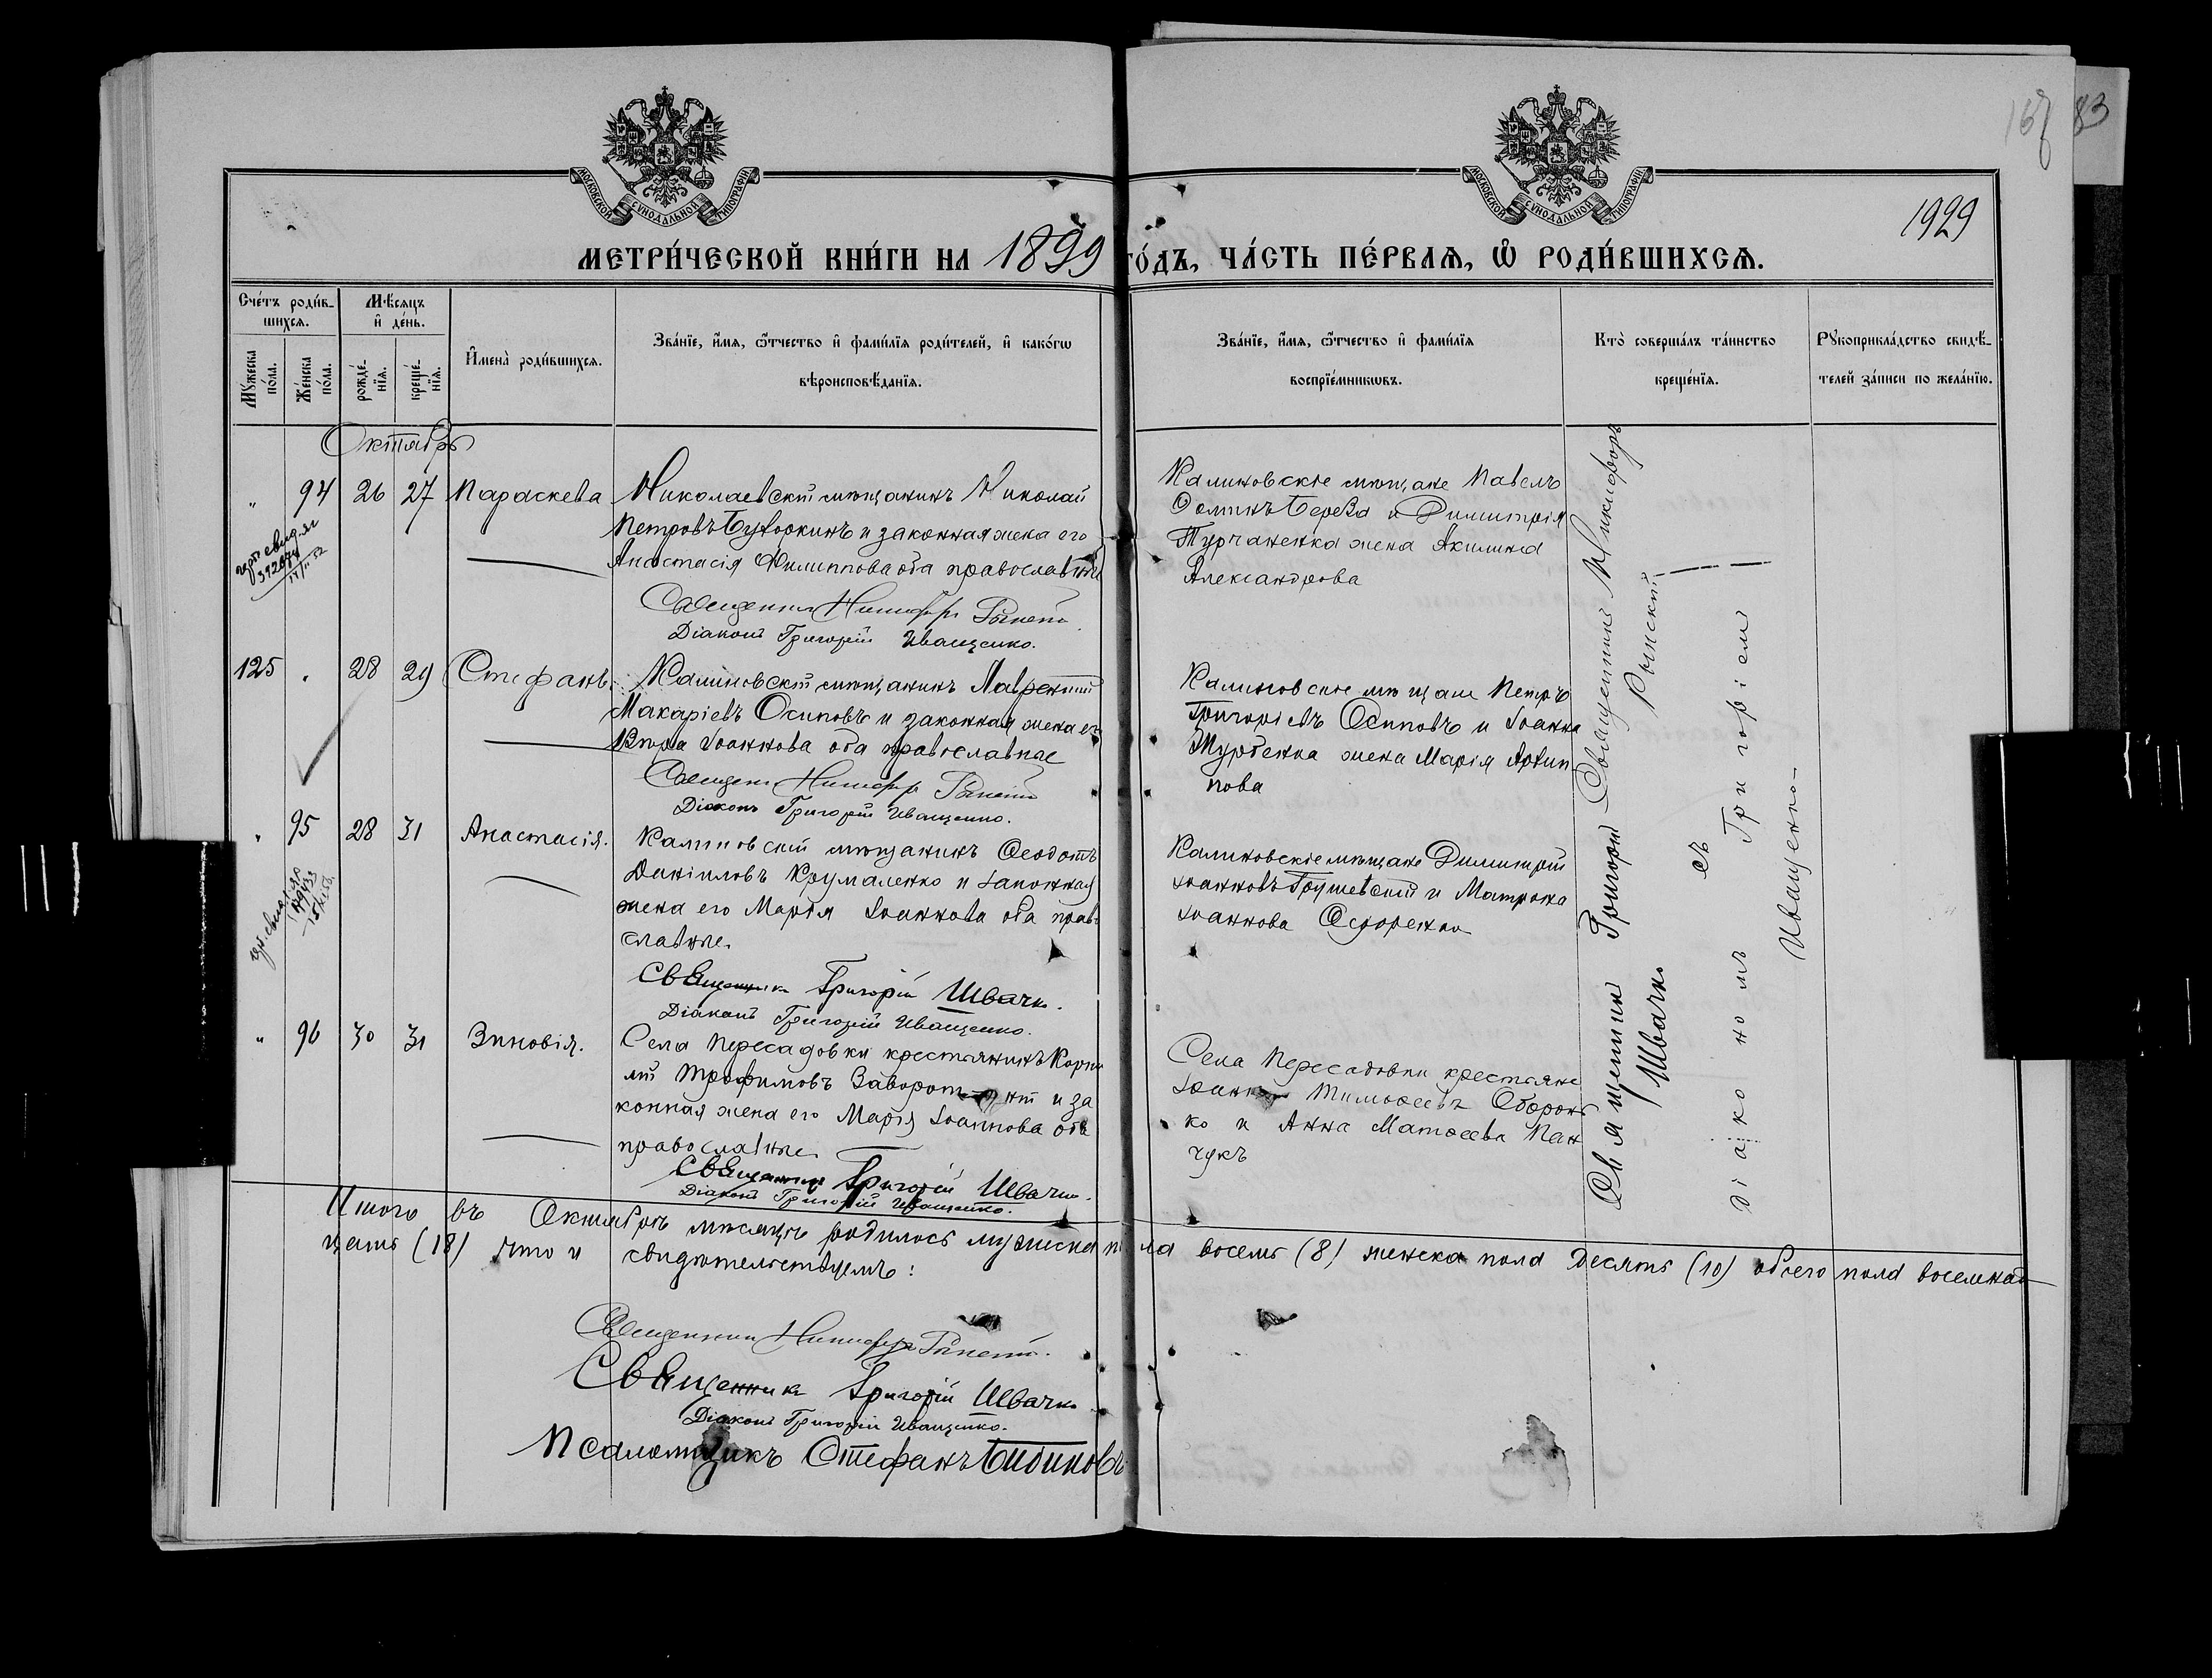 МОСКОВСКОЙ СУНОДАЛЬНОЙ ТИПОГРАФІИ
МОСКОВСКОЙ СУНОДАЛЬНОЙ ТИПОГРАФІИ
83
1929
МЕТРИ́ЧЕСКОЙ КНИ́ГИ НА 1899 ГО́ДЪ, ЧА́СТЬ ПЕ́РВАѦ, Ѡ҆ РОДИ́ВШИХСѦ.
Сче́тъ роди́в-
шихсѧ.
Мѣ́сѧцъ
и҆ де́нь.
Мꙋ́жеска
по́ла.
Же́нска
по́ла.
рожде́-
нїѧ.
креще́-
нїѧ.
И҆мена̀ роди́вшихсѧ.
Зва́нїе, и҆́мѧ, ѻ҆́тчество и҆ фами́лїѧ роди́телей, и҆ како́гѡ
вѣроисповѣ́данїѧ.
Зва́нїе, и҆́мѧ, ѻ҆́тчество и҆ фами́лїѧ
воспрїе́мникѡвъ.
Кто̀ соверша́лъ та́инство
креще́нїѧ.
Рꙋкоприкла́дство свидѣ́-
телей за́писи по жела́нїю.
Октябрь
" 94 26 27 Параскева
Николаевскій мѣщанинъ Николай
Петровъ Буторкинъ и законная жена его
Анастасія Филиппова оба православные
Священникъ Никифоръ Рынскій
Діаконъ Григорій Иващенко.
Калиновскіе мѣщане Павелъ
Ѳоминъ Береза и Димитрія
Турчаненка жена Акилина
Александрова
125 " 28 29 Стефанъ.
Калиновскій мѣщанинъ Лаврентій
Макаріевъ Осиповъ и законная жена его
Вѣра Іоаннова оба православные
Священникъ Никифоръ Рынскій
Діаконъ Григорій Иващенко.
Калиновскіе мѣщане Петръ
Григоріевъ Осиповъ и Іоанна
Журбенка жена Марія Архип-
пова
" 95 28 31 Анастасія.
Калиновскій мѣщанинъ Ѳеодотъ
Даніиловъ Крумаленко и законная
жена его Марія Іоаннова оба право
славные.
Священникъ Григорій Швачко.
Діаконъ Григорій Иващенко.
Калиновскіе мѣщане Димитрій
Іоанновъ Грушевскій и Матрона
Іоаннова Ѳедоренко
" 96 30 31 Зиновія.
Села Пересадовки крестьянинъ Корни
лій Трофимовъ и за
конная жена его Марія Іоаннова оба
православные
Священникъ Григорій Швачко.
Діаконъ Григорій Иващенко.
Села Пересадовки крестьяне
Іоаннъ Тимоѳеевъ
ко и Анна Матѳеева Пан
чукъ
Священникъ Никифоръ
Рынскій
Священникъ Григорій
Швачко
съ
діакономъ Григоріемъ
Иващенко
Итого въ Октябрѣ мѣсяцѣ родилось мужеска пола восемь (8) женска пола десять (10) обоего пола восемнад
цать (18) что и свидѣтельствуемъ:
Священникъ Никифоръ Рынскій.
Священникъ Григорій Швачко
Діаконъ Григорій Иващенко.
Псаломщикъ Стефанъ Бибиковъ